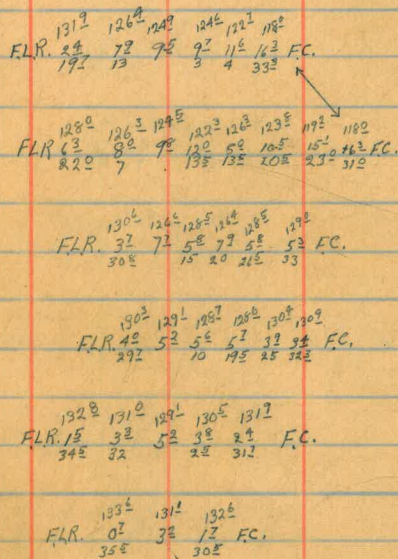 131⁹ 126⁴ 124⁹ 124⁶ 122⁷ 118⁰
F.L.R. 2⁴ 7⁹ 9⁵ 9⁷ 11⁶ 16³ F.C.
19⁷ 13 3 4 33⁸
128⁰ 126³ 124⁵ 122³ 126³ 123⁸ 119² 118⁰
FLR 6³ 8⁰ 9⁸ 12⁰ 5⁰ 10⁵ 15¹ 16³ F.C.
22⁰ 7 13⁵ 13⁵ 20⁵ 23⁰ 31⁰
130⁶ 126⁶ 128⁵ 126⁴ 128⁵ 129⁰
F.L.R. 3⁷ 7⁷ 5⁸ 7⁹ 5⁸ 5³ F.C.
30⁸ 15 20 26⁵ 33
130³ 129¹ 128⁷ 128⁶ 130⁴ 130⁹
F.L.R. 4⁰ 5² 5⁶ 5⁷ 3⁹ 3⁴ F.C.
29⁷ 10 19⁵ 25 32³
132⁸ 131⁰ 129¹ 130⁵ 131⁹
F.L.R. 1⁵ 3³ 5² 3⁸ 2⁴ F.C.
34⁵ 32 2⁵ 31⁷
133⁶ 131¹ 132⁶
F.L.R. 0⁷ 3² 1⁷ F.C.
35⁵ 30⁵